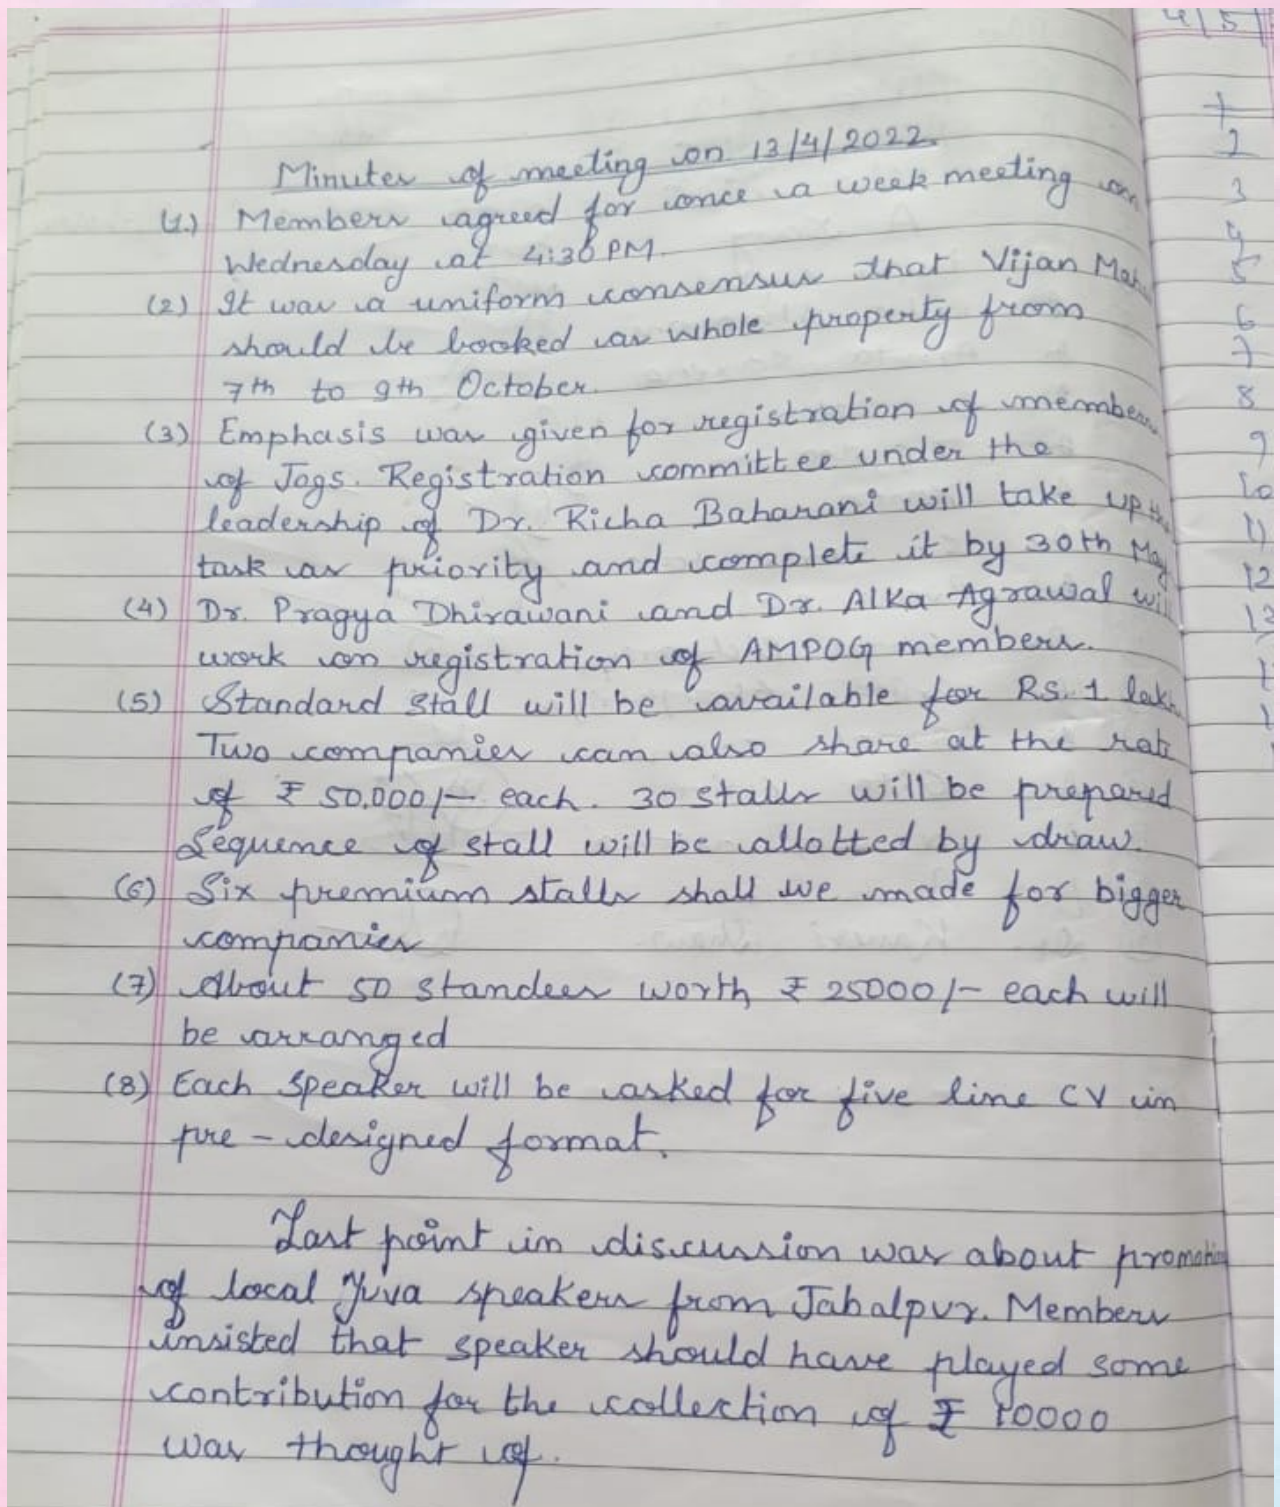 4/5/
Minutes of meeting on 13/4/2022.
(1.) Members agreed for once a week meeting on
Wednesday at 4:30 PM.
(2) It was a uniform consensus that Vijan
should be booked as whole property from
7th to 9th October.
(3) Emphasis was given for registration of members
of Jogs. Registration committee under the
leadership of Dr. Richa Baharani will take up the
task as priority and complete it by 30th May
(4) Dr. Pragya Dhirawani and Dr. Alka Agrawal will
work on registration of AMPOG members.
(5) Standard Stall will be available for RS. 1 lakh
Two companies can also share at the rate
of ₹ 50,000/- each. 30 stalls will be prepared
Sequence of stall will be allotted by draw.
(6) Six premium stalls shall we made for bigger
companies
(7) About 50 standees worth ₹ 25000/- each will
be arranged
(8) Each speaker will be asked for five line CV in
pre-designed format.
Last point in discussion was about promotion
of local Yuva speakers from Jabalpur. Members
insisted that speaker should have played some
contribution for the collection of ₹ 10000
was thought of.
1
2
3
4
5
6
7
8
9
10
11
12
13